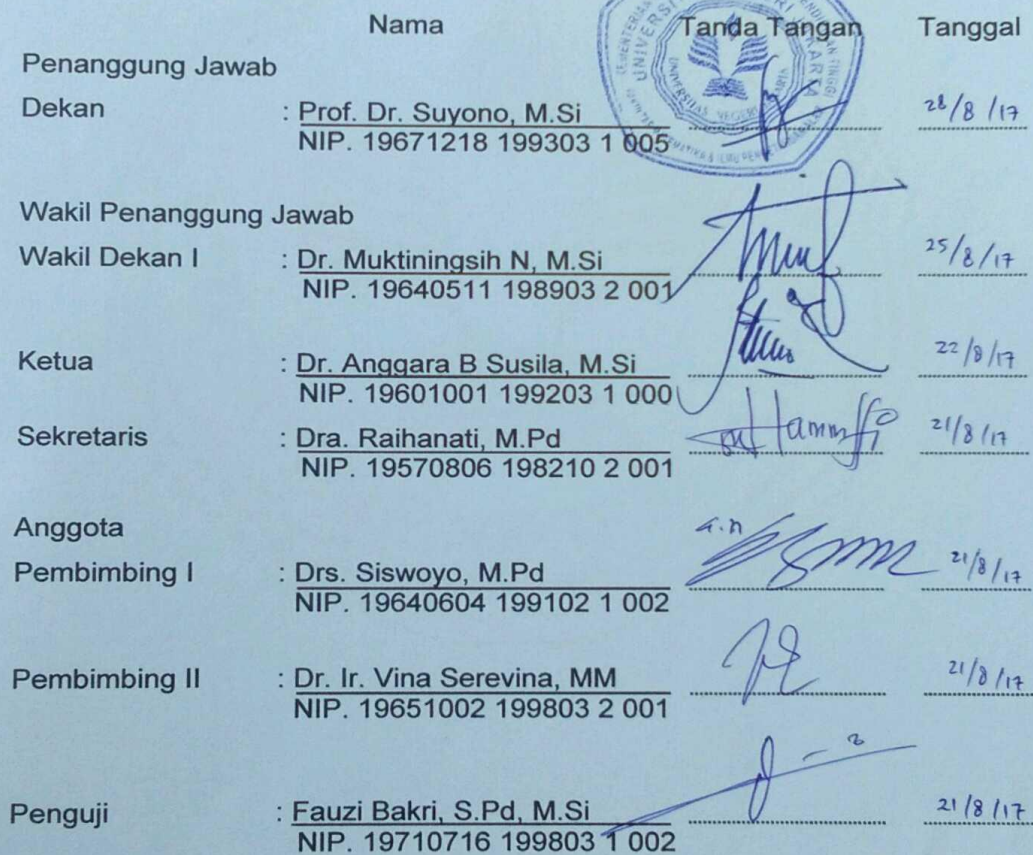 Nama Tanda Tangan Tanggal
Penanggung Jawab
Dekan : Prof. Dr. Suyono, M.Si 28/8/17
NIP. 19671218 199303 1 005
Wakil Penanggung Jawab
Wakil Dekan I : Dr. Muktiningsih N, M.Si 25/8/17
NIP. 19640511 198903 2 001
Ketua : Dr. Anggara B Susila, M.Si 22/8/17
NIP. 19601001 199203 1 000
Sekretaris : Dra. Raihanati, M.Pd 21/8/17
NIP. 19570806 198210 2 001
Anggota
a.n
Pembimbing I : Drs. Siswoyo, M.Pd 21/8/17
NIP. 19640604 199102 1 002
Pembimbing II : Dr. Ir. Vina Serevina, MM 21/8/17
NIP. 19651002 199803 2 001
Penguji : Fauzi Bakri, S.Pd, M.Si 21/8/17
NIP. 19710716 199803 1 002